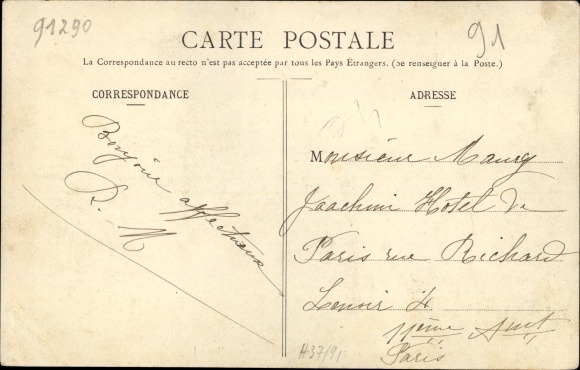 91290
91
CARTE POSTALE
La Correspondance au recto n'est pas acceptée par tous les Pays Étrangers. (Se renseigner à la Poste.)
CORRESPONDANCE
Bonjour affectueux
R. M
ADRESSE
Monsieur Maury
Joachim Hotel de
Paris rue Richard
Lenoir 4
11ème Arrt
Paris
H37/91